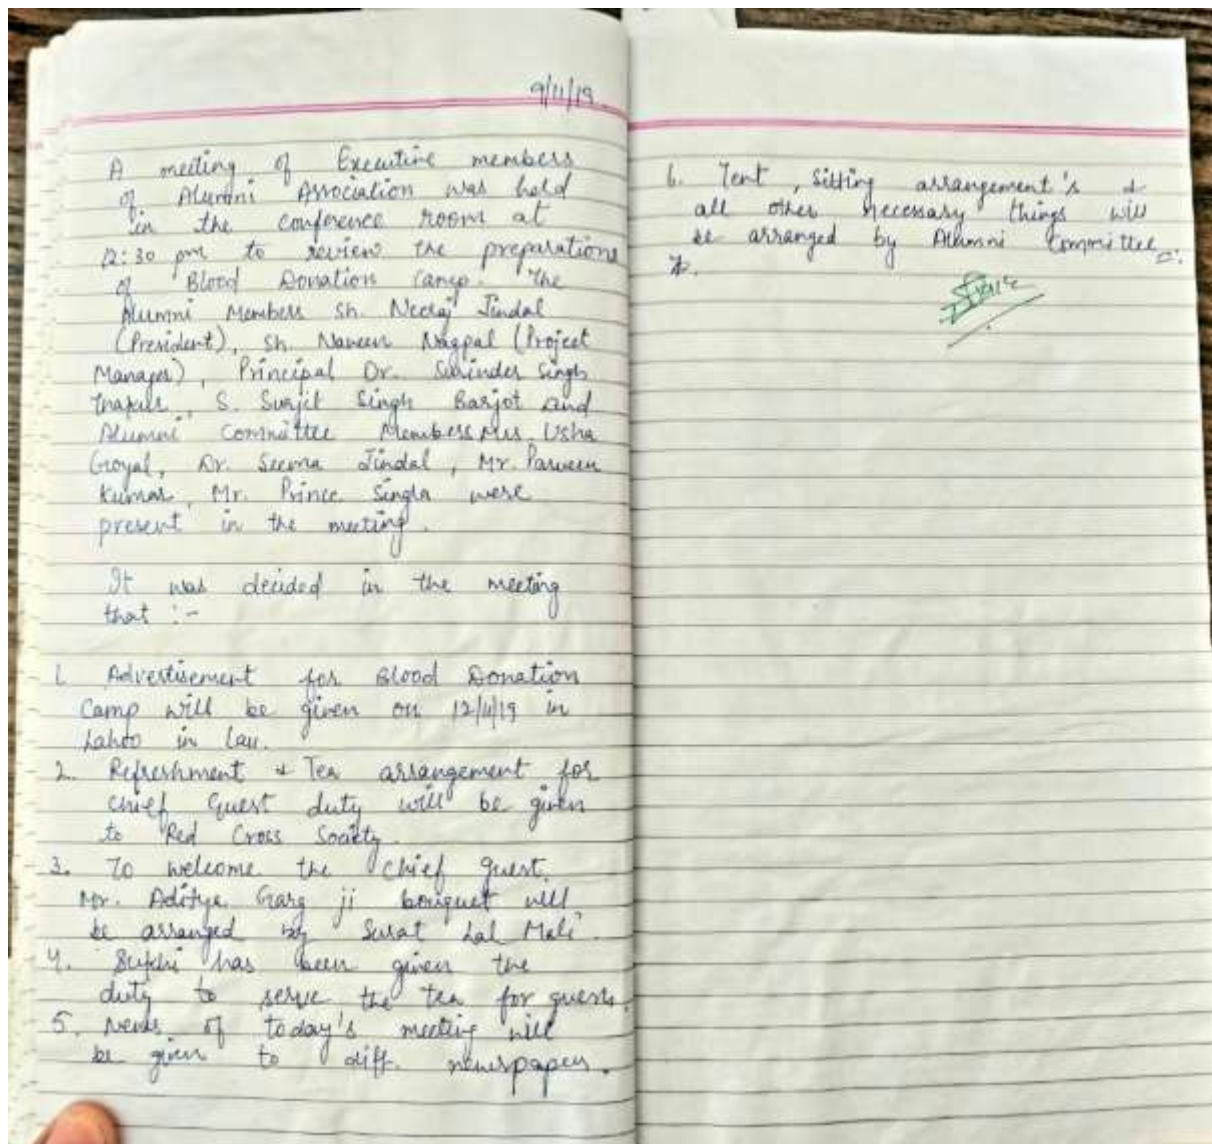 9/11/19
A meeting of Executive members
of Alumni Association was held
in the conference room at
12:30 pm to review the preparations
of Blood Donation Camp. The
Alumni Members Sh. Neeraj Jindal
(President), Sh. Naveen Nagpal (Project
Manager), Principal Dr. Surinder Singh
S. Surjit Singh Barjot and
Alumni Committee Members Mrs. Usha
Goyal, Dr. Seema Jindal, Mr. Parveen
Kumar, Mr. Prince Singla were
present in the meeting.
It was decided in the meeting
that :-
1. Advertisement for Blood Donation
Camp will be given on 12/11/19 in
in
2. Refreshment & Tea arrangement for
Chief Guest duty will be given
to Red Cross Society.
3. To welcome the Chief guest
Mr. Aditya Garg ji bouquet will
be arranged by Surat Lal Mali.
4. has been given the
duty to serve the tea for guests.
5. News of today's meeting will
be given to diff. newspapers.
6. Tent, sitting arrangement's &
all other necessary things will
be arranged by Alumni Committee